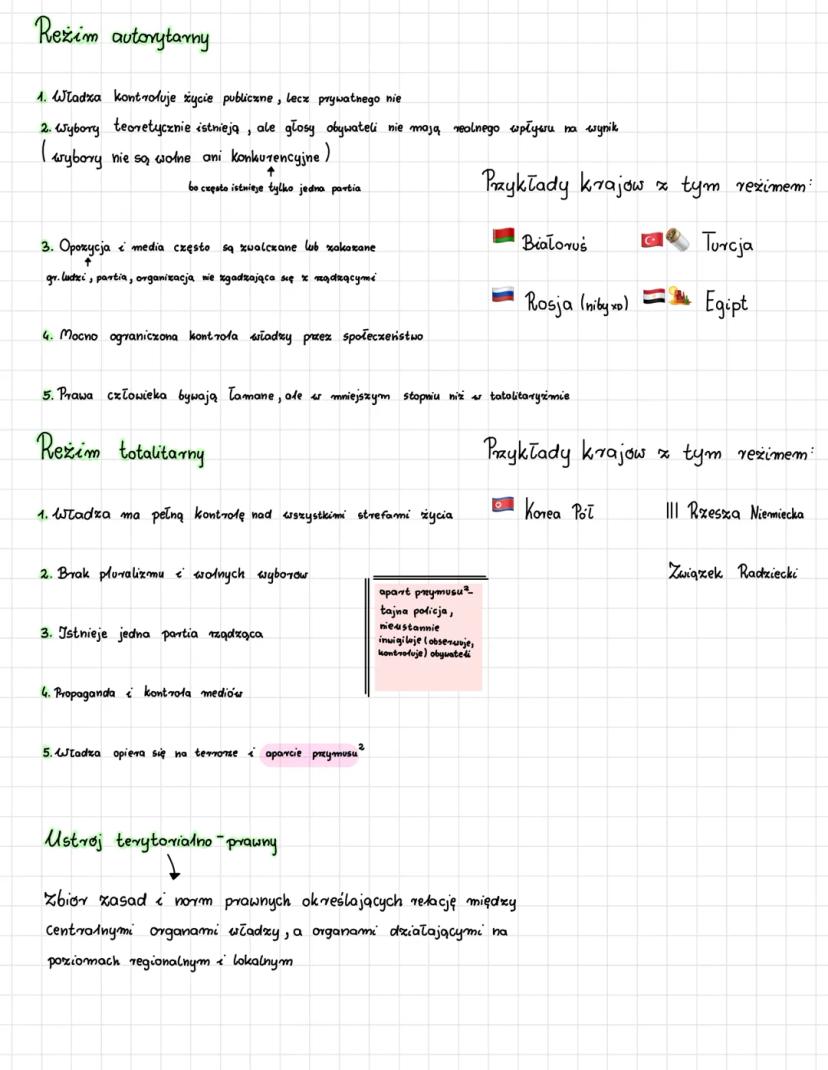 Reżim autorytarny
1. Władza kontroluje życie publiczne, lecz prywatnego nie
2. Wybory teoretycznie istnieją, ale głosy obywateli nie mają realnego wpływu na wynik
(wybory nie są wolne ani konkurencyjne)
bo często istnieje tylko jedna partia
3. Opozycja i media często są zwalczane lub zakazane
gr. ludzi, partia, organizacja nie zgadzająca się z rządzącymi
4. Mocno ograniczona kontrola władzy przez społeczeństwo
5. Prawa człowieka bywają łamane, ale w mniejszym stopniu niż w totalitaryzmie
Przykłady krajów z tym reżimem:
Białoruś
Turcja
Rosja (niby xD)
Egipt
Reżim totalitarny
1. Władza ma pełną kontrolę nad wszystkimi strefami życia
2. Brak pluralizmu i wolnych wyborów
3. Istnieje jedna partia rządząca
4. Propaganda i kontrola mediów
5. Władza opiera się na terrorze i aparcie przymusu²
apart przymusu²-
tajna policja,
nieustannie
inwigiluje (obserwuje,
kontroluje) obywateli
Przykłady krajów z tym reżimem:
Korea Pół
III Rzesza Niemiecka
Związek Radziecki
Ustrój terytorialno-prawny
Zbiór zasad i norm prawnych określających relację między
centralnymi organami władzy, a organami działającymi na
poziomach regionalnym i lokalnym